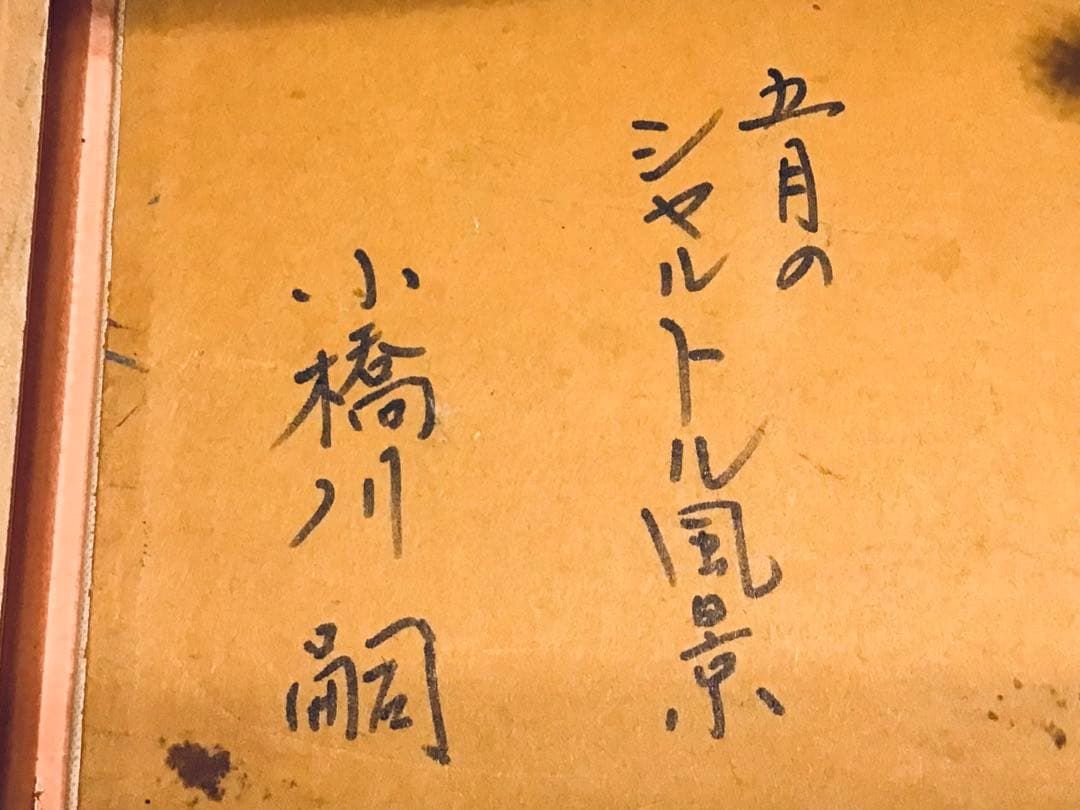 五月の
シャルトル風景
小橋川 嗣